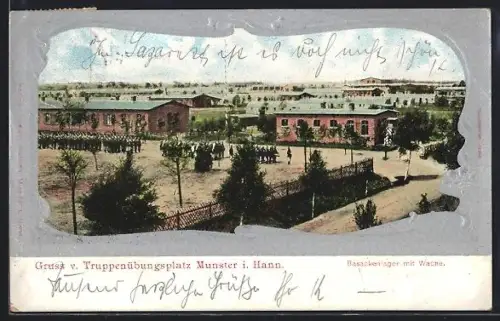 Im Lazarett ist es doch nicht schön
Gruss v. Truppenübungsplatz Munster i. Hann.
Barackenlager mit Wache.
Tausend herzliche Grüße